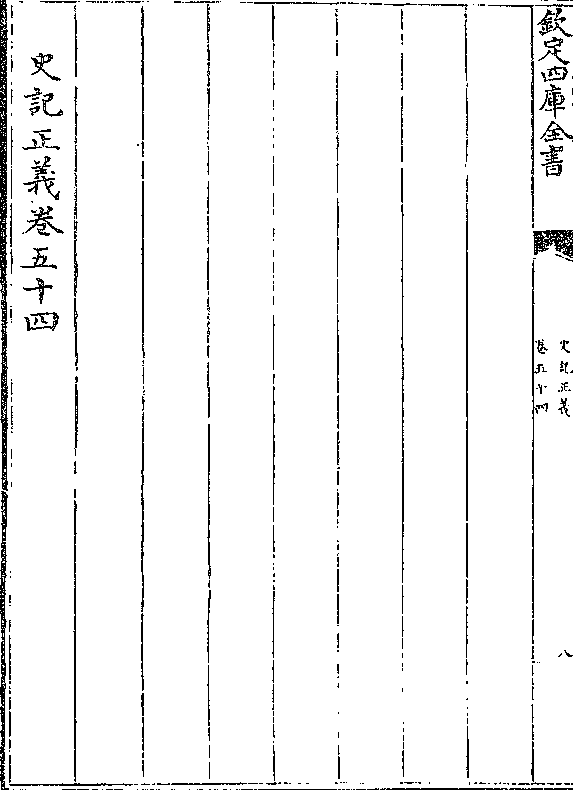 欽定四庫全書
史記正義
卷五十四
八
史記正義卷五十四